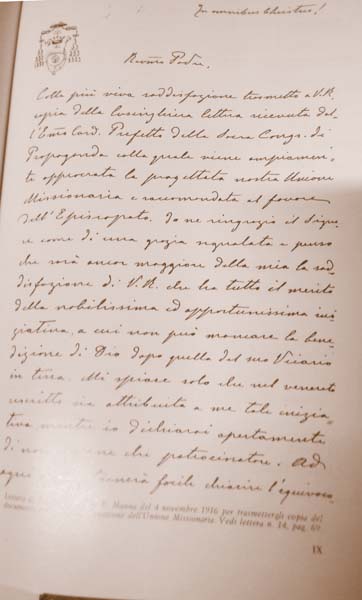 In omnibus Christus!
Revmo Padre,
Colla più viva soddisfazione trasmetto a V. R.
copia della lusinghiera lettera ricevuta dal-
l'Emo Card. Prefetto della Sacra Congr. di
Propaganda colla quale viene ampiamen-
te approvata la progettata nostra Unione
Missionaria e raccomandata al favore
dell'Episcopato. Io ne ringrazio il Signo-
re come di una grazia segnalata e penso
che sarà ancor maggiore della mia la sod-
disfazione di V. R. che ha tutto il merito
della nobilissima ed opportunissima ini-
ziativa, a cui non può mancare la bene-
dizione di Dio dopo quella del suo Vicario
in terra. Mi spiace solo che nel venerato
scritto sia attribuita a me tale inizia-
tiva mentre io dichiarai apertamente
di non che patrocinatore. Ad
facile chiarire l'equivoco
Manna del 4 novembre 1916 per trasmettergli copia del
dell'Unione Missionaria. Vedi lettera n. 14, pag. 69.
IX